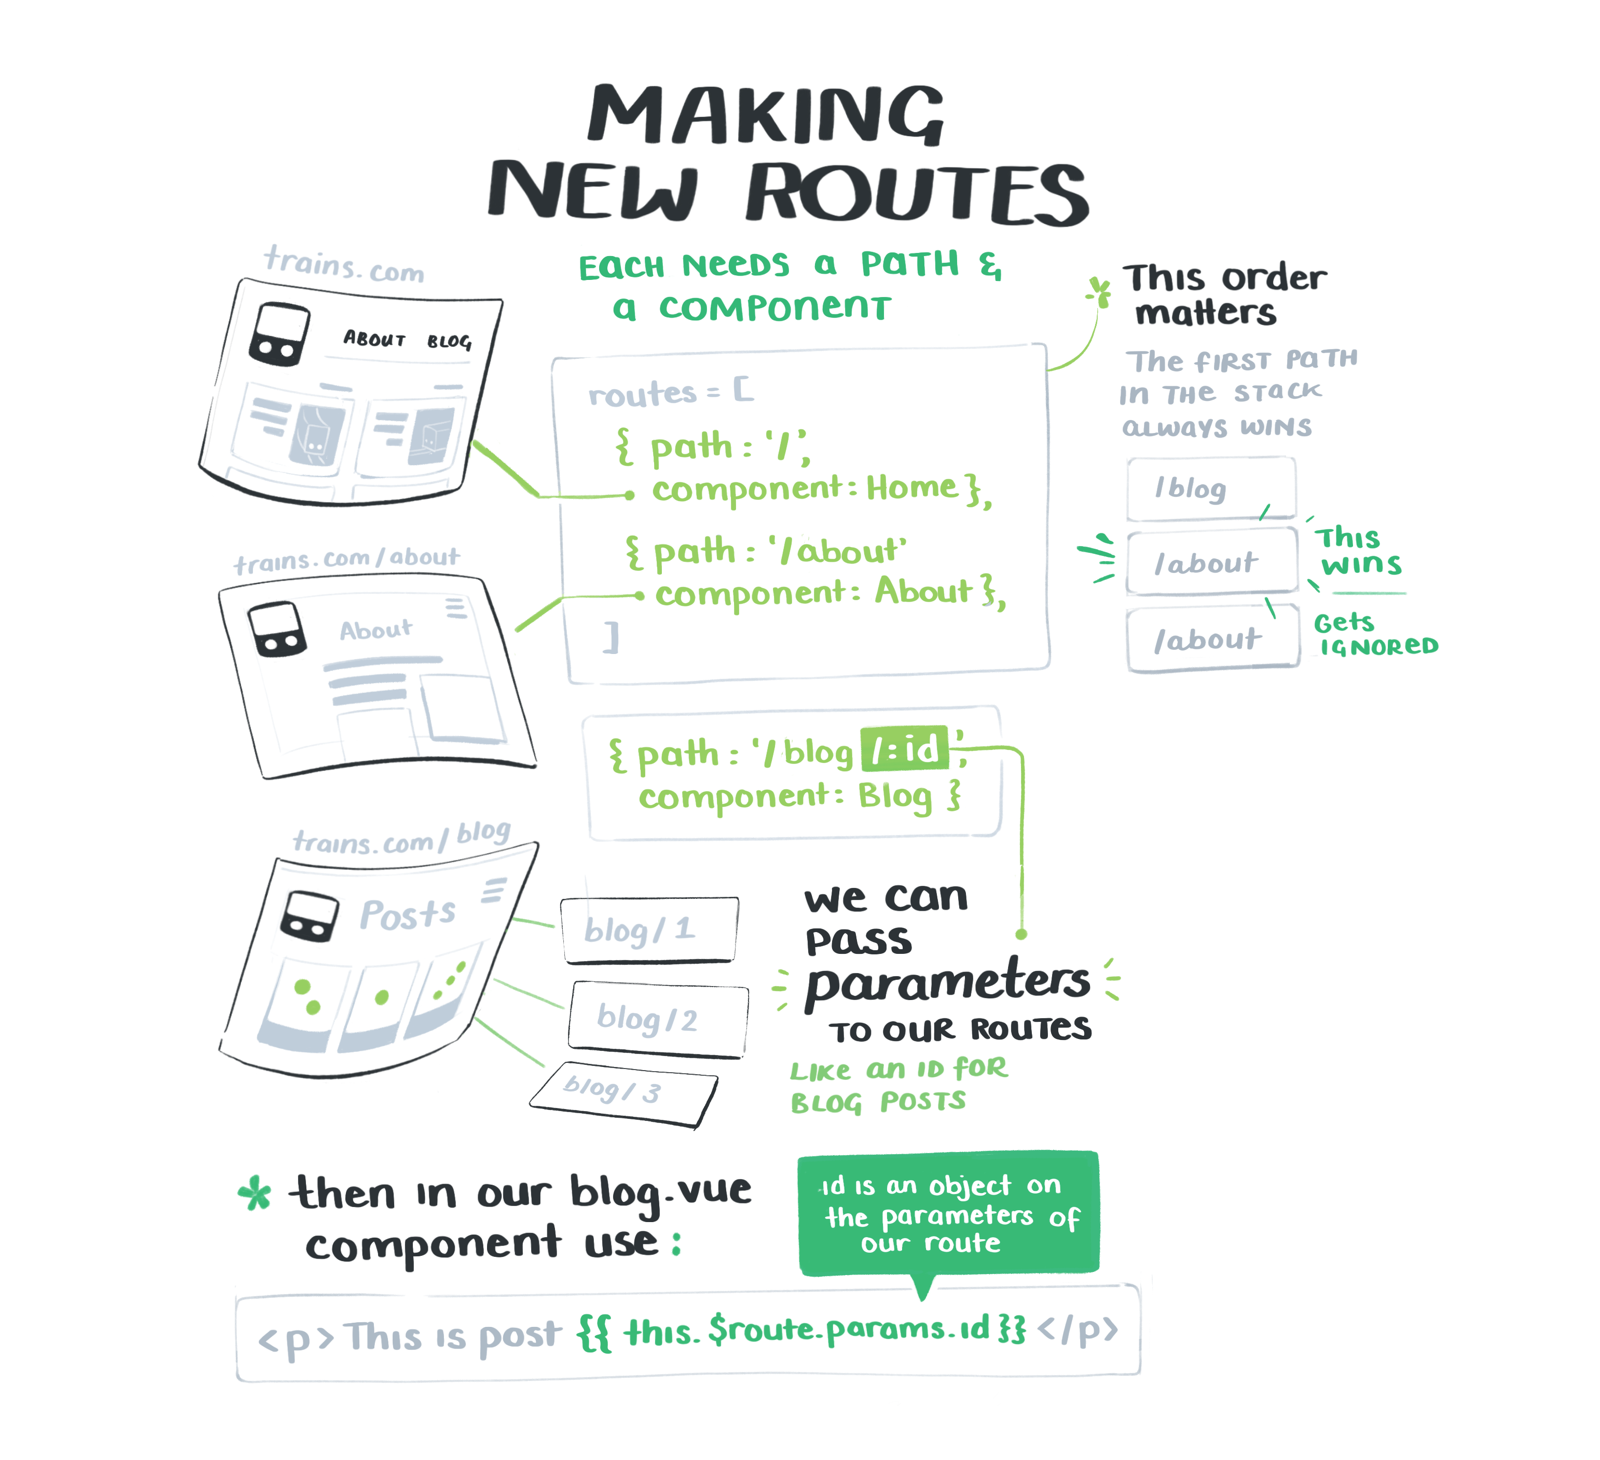 MAKING
NEW ROUTES
EACH NEEDS A PATH &
A COMPONENT
trains.com
ABOUT BLOG
routes = [
{ path: '/',
component: Home },
{ path: '/about'
component: About },
]
* This order
matters
THE FIRST PATH
IN THE STACK
ALWAYS WINS
/blog
/about
THIS
WINS
/about
GETS
IGNORED
trains.com/about
About
{ path: '/blog/:id',
component: Blog }
trains.com/blog
Posts
blog/1
blog/2
blog/3
we can
pass
parameters
TO OUR ROUTES
LIKE AN ID FOR
BLOG POSTS
* then in our blog.vue
component use:
id is an object on
the parameters of
our route
<p> This is post {{ this.$route.params.id }} </p>